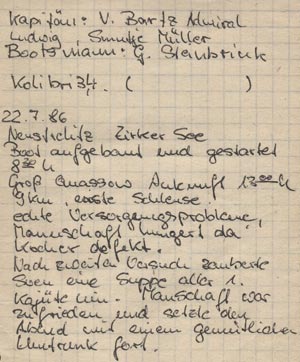 Kapitän: V. Bartz Admiral
Ludwig, Smutje Müller
Bootsmann: G. Steinbrink
Kolibri 34. ( )
22.7.86
Neustrelitz Zirker See
Boot aufgebaut und gestartet
8 30 h
Groß Quassow Ankunft 13 00 h
9 km, erste Schleuse.
echte Versorgungsprobleme,
Mannschaft hungert da
Kocher defekt.
Nach zweiten Versuch zauberte
Sven eine Suppe aller 1.
Kajüte hin. Manschaft war
zufrieden und setzte den
Abend mit einem gemütlichen
Umtrunk fort.